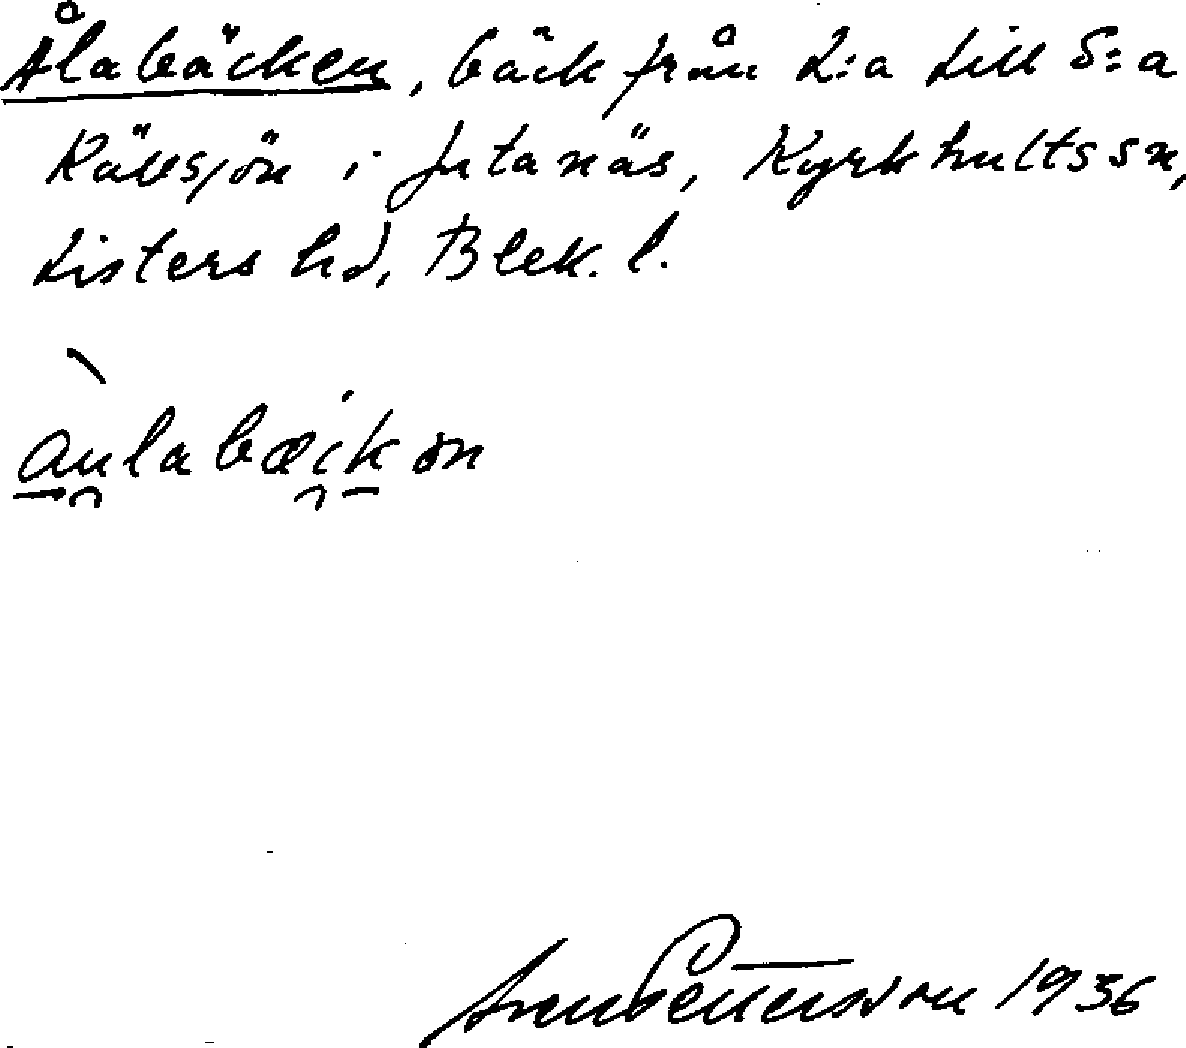 Ålabäcken, bäck från L:a till S:a
Rävsjön i Jutanäs, Kyrkhults sn,
Listers hd, Blek. l.
àulabæikən
Pettersson 1936